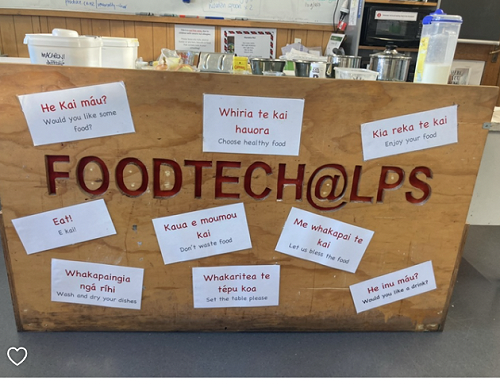 He Kai máu?
Would you like some
food?
Whiria te kai
hauora
Choose healthy food
Kia reka te kai
Enjoy your food
FOODTECH@LPS
Eat!
E kai!
Kaua e moumou
kai
Don't waste food
Me whakapai te
kai
Let us bless the food
Whakapaingia
ngá ríhi
Wash end dry your dishes
Whakaritea te
tēpu koa
Set the table please
He inu máu?
Would you like a drink?